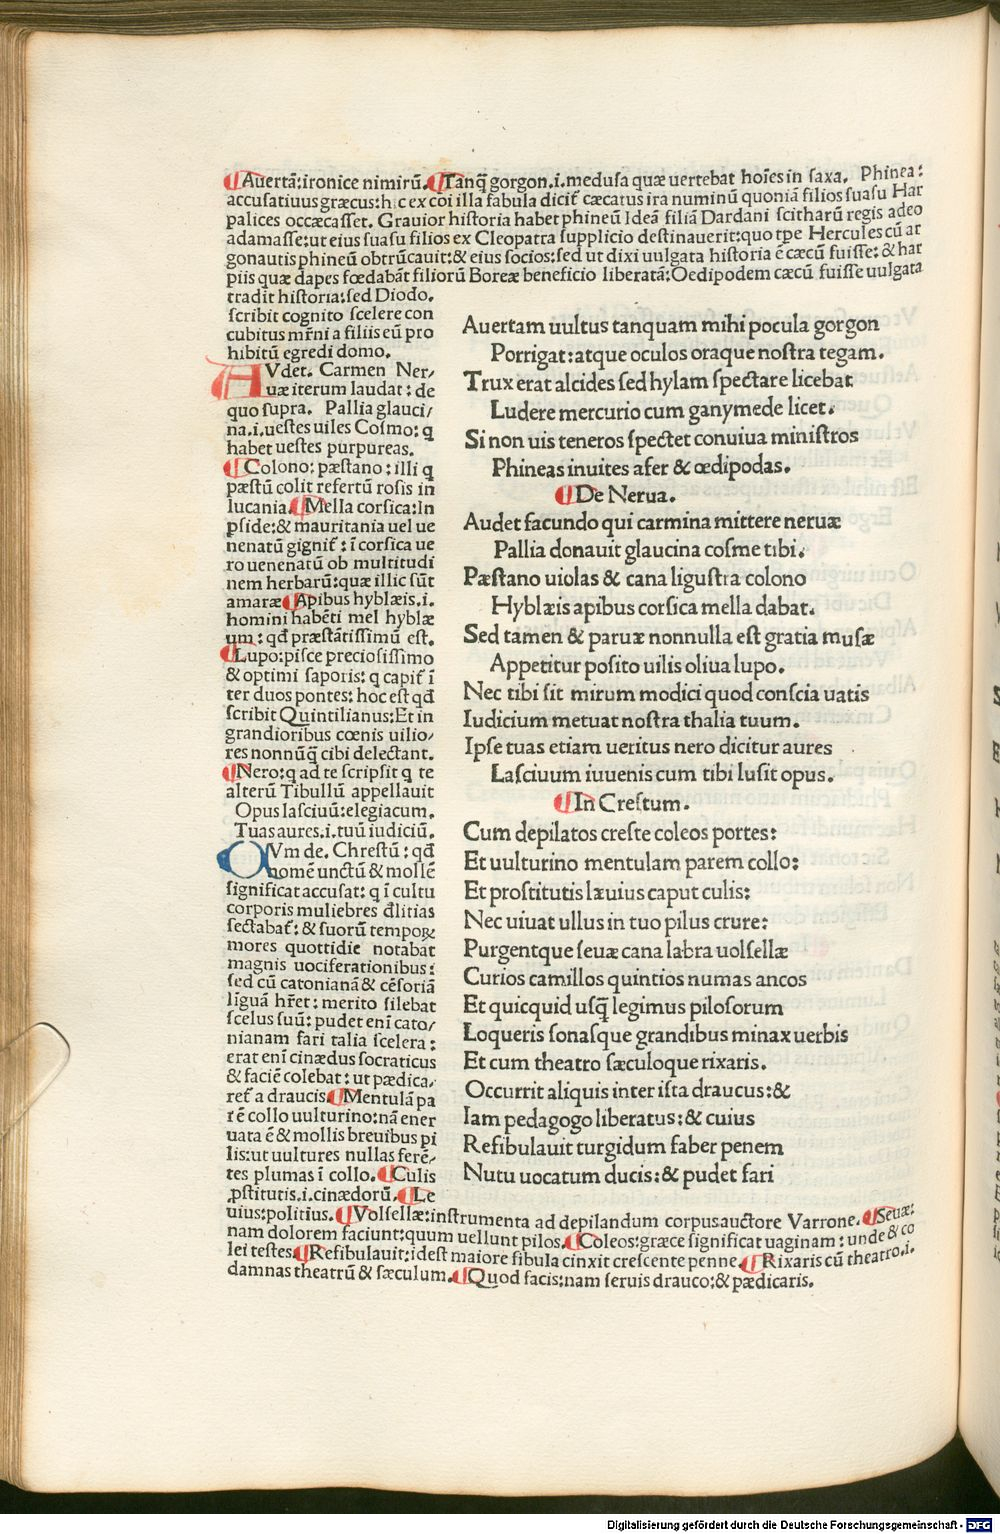 Auertā: ironice nimirū. Tanq̃ gorgon .i. medusa quæ uertebat hoīes in saxa. Phinea:
accusatiuus græcus: hic ex coi illa fabula dicit̃ cæcatus ira numinū quoniā filios suasu Har
palices occæcasset. Grauior historia habet phineū Ideā filiā Dardani scitharū regis adeo
adamasse: ut eius suasu filios ex Cleopatra supplicio destinauerit: quo tpe Hercules cū ar
gonautis phineū obtrūcauit: & eius socios: sed ut dixi uulgata historia ē cæcū fuisse: & har
piis quæ dapes fœdabāt filiorū Boreæ beneficio liberatā: Oedipodem cæcū fuisse uulgata
tradit historia: sed Diodo.
scribit cognito scelere con
cubitus mr̄ni a filiis eū pro
hibitū egredi domo.
AVdet. Carmen Ner/
uæ iterum laudat: de
quo supra. Pallia glauci/
na .i. uestes uiles Cosmo: q
habet uestes purpureas.
Colono: pæstano: illi q
pæstū colit refertū rosis in
lucania. Mella corsica: In
pside: & mauritania uel ue
nenatū gignit̃: ī corsica ue
ro uenenatū ob multitudi
nem herbarū: quæ illic sūt
amaræ Apibus hyblæis .i.
homini habēti mel hyblæ
um: qd̄ præstātissimū est.
Lupo: pisce preciosissimo
& optimi saporis: q capit̃ ī
ter duos pontes: hoc est qd̄
scribit Quintilianus: Et in
grandioribus cœnis uilio/
res nonnūq̃ cibi delectant.
Nero: q ad te scripsit q te
alterū Tibullū appellauit
Opus lasciuū: elegiacum.
Tuas aures .i. tuū iudiciū.
QVm de. Chrestū: qd̄
nomē unctū & mollē
significat accusat: q ī cultu
corporis muliebres dlitias
sectabat̃: & suorū tempoꝝ
mores quottidie notabat
magnis uociferationibus:
sed cū catonianā & cēsoriā
līguā hr̄et: merito silebat
scelus suū: pudet eni cato/
nianam fari talia scelera:
erat eni cinædus socraticus
& faciē colebat: ut pædica/
ret̃ a draucis. Mentulā pa
rē collo uulturino: nā ener
uata ē & mollis breuibus pi
lis: ut uultures nullas ferē/
tes plumas ī collo. Culis
ꝓstitutis .i. cinædorū. Le
uius: politius. Volsellæ: instrumenta ad depilandum corpus auctore Varrone. Seuæ:
nam dolorem faciunt: quum uellunt pilos. Coleos: græce significat uaginam: unde & co
lei testes. Refibulauit: idest maiore fibula cinxit crescente penne. Rixaris cū theatro .i.
damnas theatrū & sæculum. Quod facis: nam seruis drauco: & pædicaris.
Auertam uultus tanquam mihi pocula gorgon
Porrigat: atque oculos oraque nostra tegam.
Trux erat alcides sed hylam spectare licebat
Ludere mercurio cum ganymede licet.
Si non uis teneros spectet conuiua ministros
Phineas inuites afer & œdipodas.
De Nerua.
Audet facundo qui carmina mittere neruæ
Pallia donauit glaucina cosme tibi.
Pæstano uiolas & cana ligustra colono
Hyblæis apibus corsica mella dabat.
Sed tamen & paruæ nonnulla est gratia musæ
Appetitur posito uilis oliua lupo.
Nec tibi sit mirum modici quod conscia uatis
Iudicium metuat nostra thalia tuum.
Ipse tuas etiam ueritus nero dicitur aures
Lasciuum iuuenis cum tibi lusit opus.
In Crestum.
Cum depilatos creste coleos portes:
Et uulturino mentulam parem collo:
Et prostitutis læuius caput culis:
Nec uiuat ullus in tuo pilus crure:
Purgentque seuæ cana labra uolsellæ
Curios camillos quintios numas ancos
Et quicquid usq̃ legimus pilosorum
Loqueris sonasque grandibus minax uerbis
Et cum theatro sæculoque rixaris.
Occurrit aliquis inter ista draucus: &
Iam pedagogo liberatus: & cuius
Refibulauit turgidum faber penem
Nutu uocatum ducis: & pudet fari
Digitalisierung gefördert durch die Deutsche Forschungsgemeinschaft - DFG